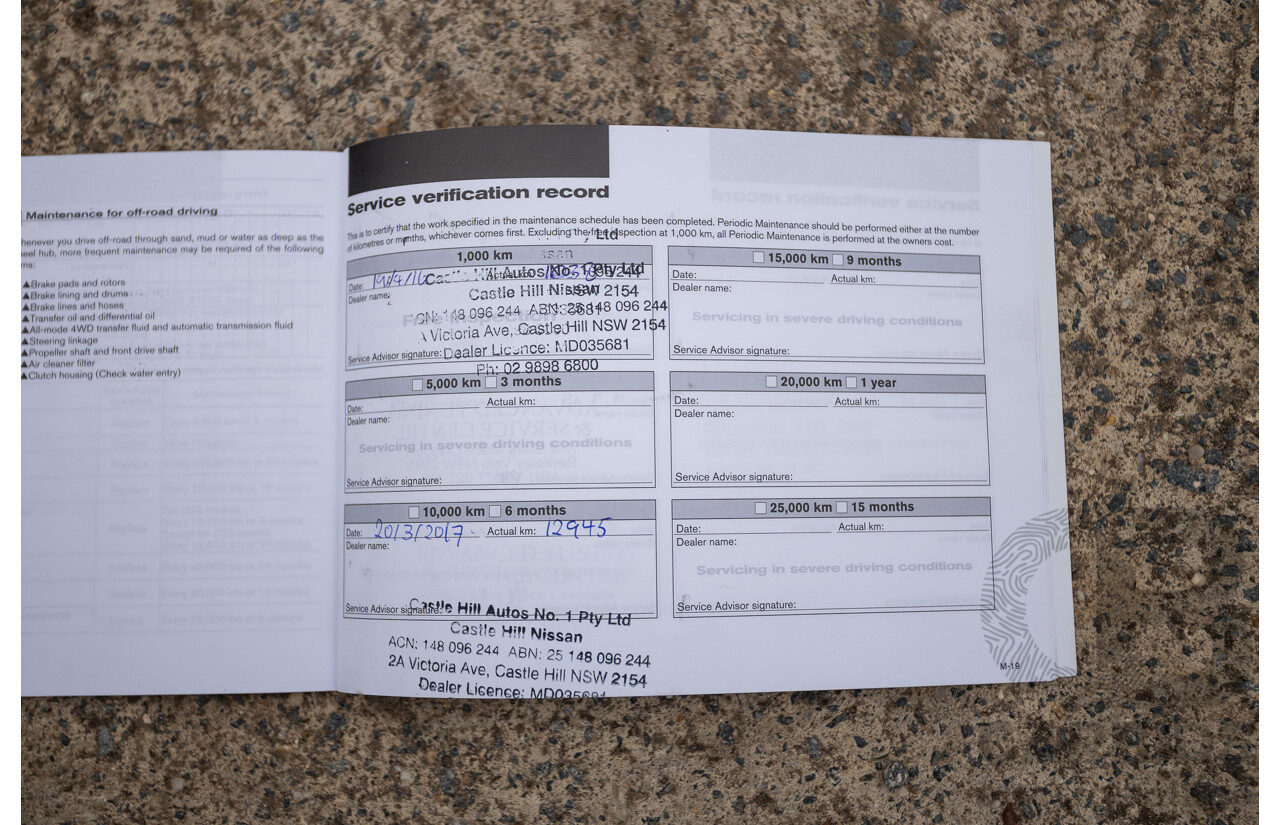 Maintenance for off-road driving
henever you drive off-road through sand, mud or water as deep as the
eel hub, more frequent maintenance may be required of the following
ms:
▲Brake pads and rotors
▲Brake lining and drums
▲Brake lines and hoses
▲Transfer oil and differential oil
▲All-mode 4WD transfer fluid and automatic transmission fluid
▲Steering linkage
▲Propeller shaft and front drive shaft
▲Air cleaner filter
▲Clutch housing (Check water entry)
Service verification record
This is to certify that the work specified in the maintenance schedule has been completed. Periodic Maintenance should be performed either at the number
of kilometres or months, whichever comes first. Excluding the free inspection at 1,000 km, all Periodic Maintenance is performed at the owners cost.
, Ltd
1,000 km
Date:
Dealer name:
Castle Hill Autos No. 1 Pty Ltd
Castle Hill Nissan
NSW 2154
ACN: 148 096 244 ABN: 25 148 096 244
Victoria Ave, Castle Hill NSW 2154
Service Advisor signature:
Dealer Licence: MD035681
Ph: 02 9898 6800
5,000 km 3 months
Date: Actual km:
Dealer name:
Servicing in severe driving conditions
Service Advisor signature:
10,000 km 6 months
Date: 20/3/2017 Actual km: 12945
Dealer name:
Service Advisor signature:
Castle Hill Autos No. 1 Pty Ltd
Castle Hill Nissan
ACN: 148 096 244 ABN: 25 148 096 244
2A Victoria Ave, Castle Hill NSW 2154
Dealer Licence: MD035681
15,000 km 9 months
Date: Actual km:
Dealer name:
Servicing in severe driving conditions
Service Advisor signature:
20,000 km 1 year
Date: Actual km:
Dealer name:
Service Advisor signature:
25,000 km 15 months
Date: Actual km:
Dealer name:
Servicing in severe driving conditions
Service Advisor signature:
M-19